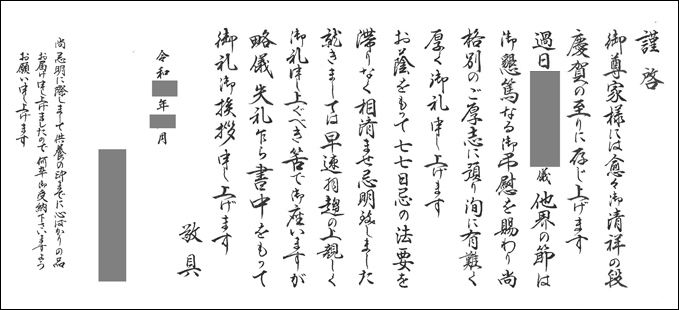 謹啓
御尊家様には愈々御清祥の段
慶賀の至りに存じ上げます
過日 儀 他界の節は
御懇篤なる御弔慰を賜わり尚
格別のご厚志に預り洵に有難く
厚く御礼申し上げます
お蔭をもって七七日忌の法要を
滞りなく相済ませ忌明致しました
就きましては早速拝趨の上親しく
御礼申し上ぐべき筈で御座いますが
略儀失礼乍ら書中をもって
御礼御挨拶申し上げます
敬具
令和 年 月
尚忌明に際しまして供養の印までに心ばかりの品
お届け申し上げましたので何卒御受納下さいますよう
お願い申し上げます